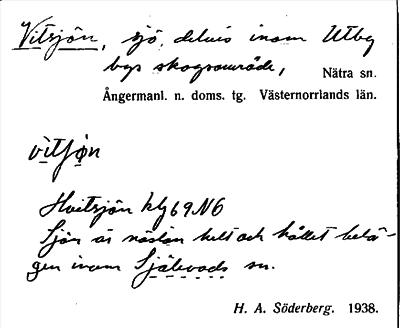 Vitsjön, sjö, delvis inom Utby
bys skogsområde,
Nätra sn.
Ångermanl. n. doms. tg. Västernorrlands län.
vitjøn
Hvitsjön klg 69 N6
Sjön är nästan helt och hållet belä-
gen inom Själevads sn.
H. A. Söderberg. 1938.